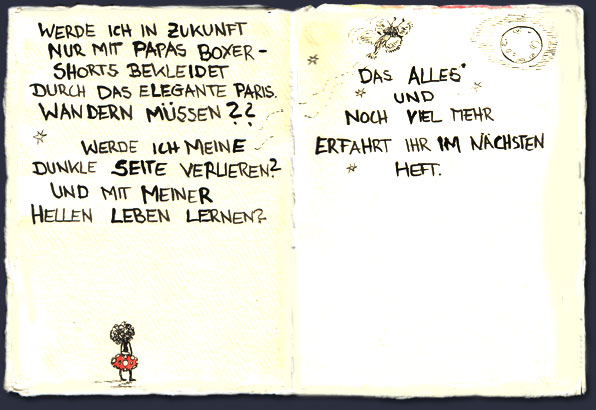 WERDE ICH IN ZUKUNFT
NUR MIT PAPAS BOXER-
SHORTS BEKLEIDET
DURCH DAS ELEGANTE PARIS.
WANDERN MÜSSEN??
WERDE ICH MEINE
DUNKLE SEITE VERLIEREN?
UND MIT MEINER
HELLEN LEBEN LERNEN?
DAS ALLES
UND
NOCH VIEL MEHR
ERFAHRT IHR IM NÄCHSTEN
HEFT.